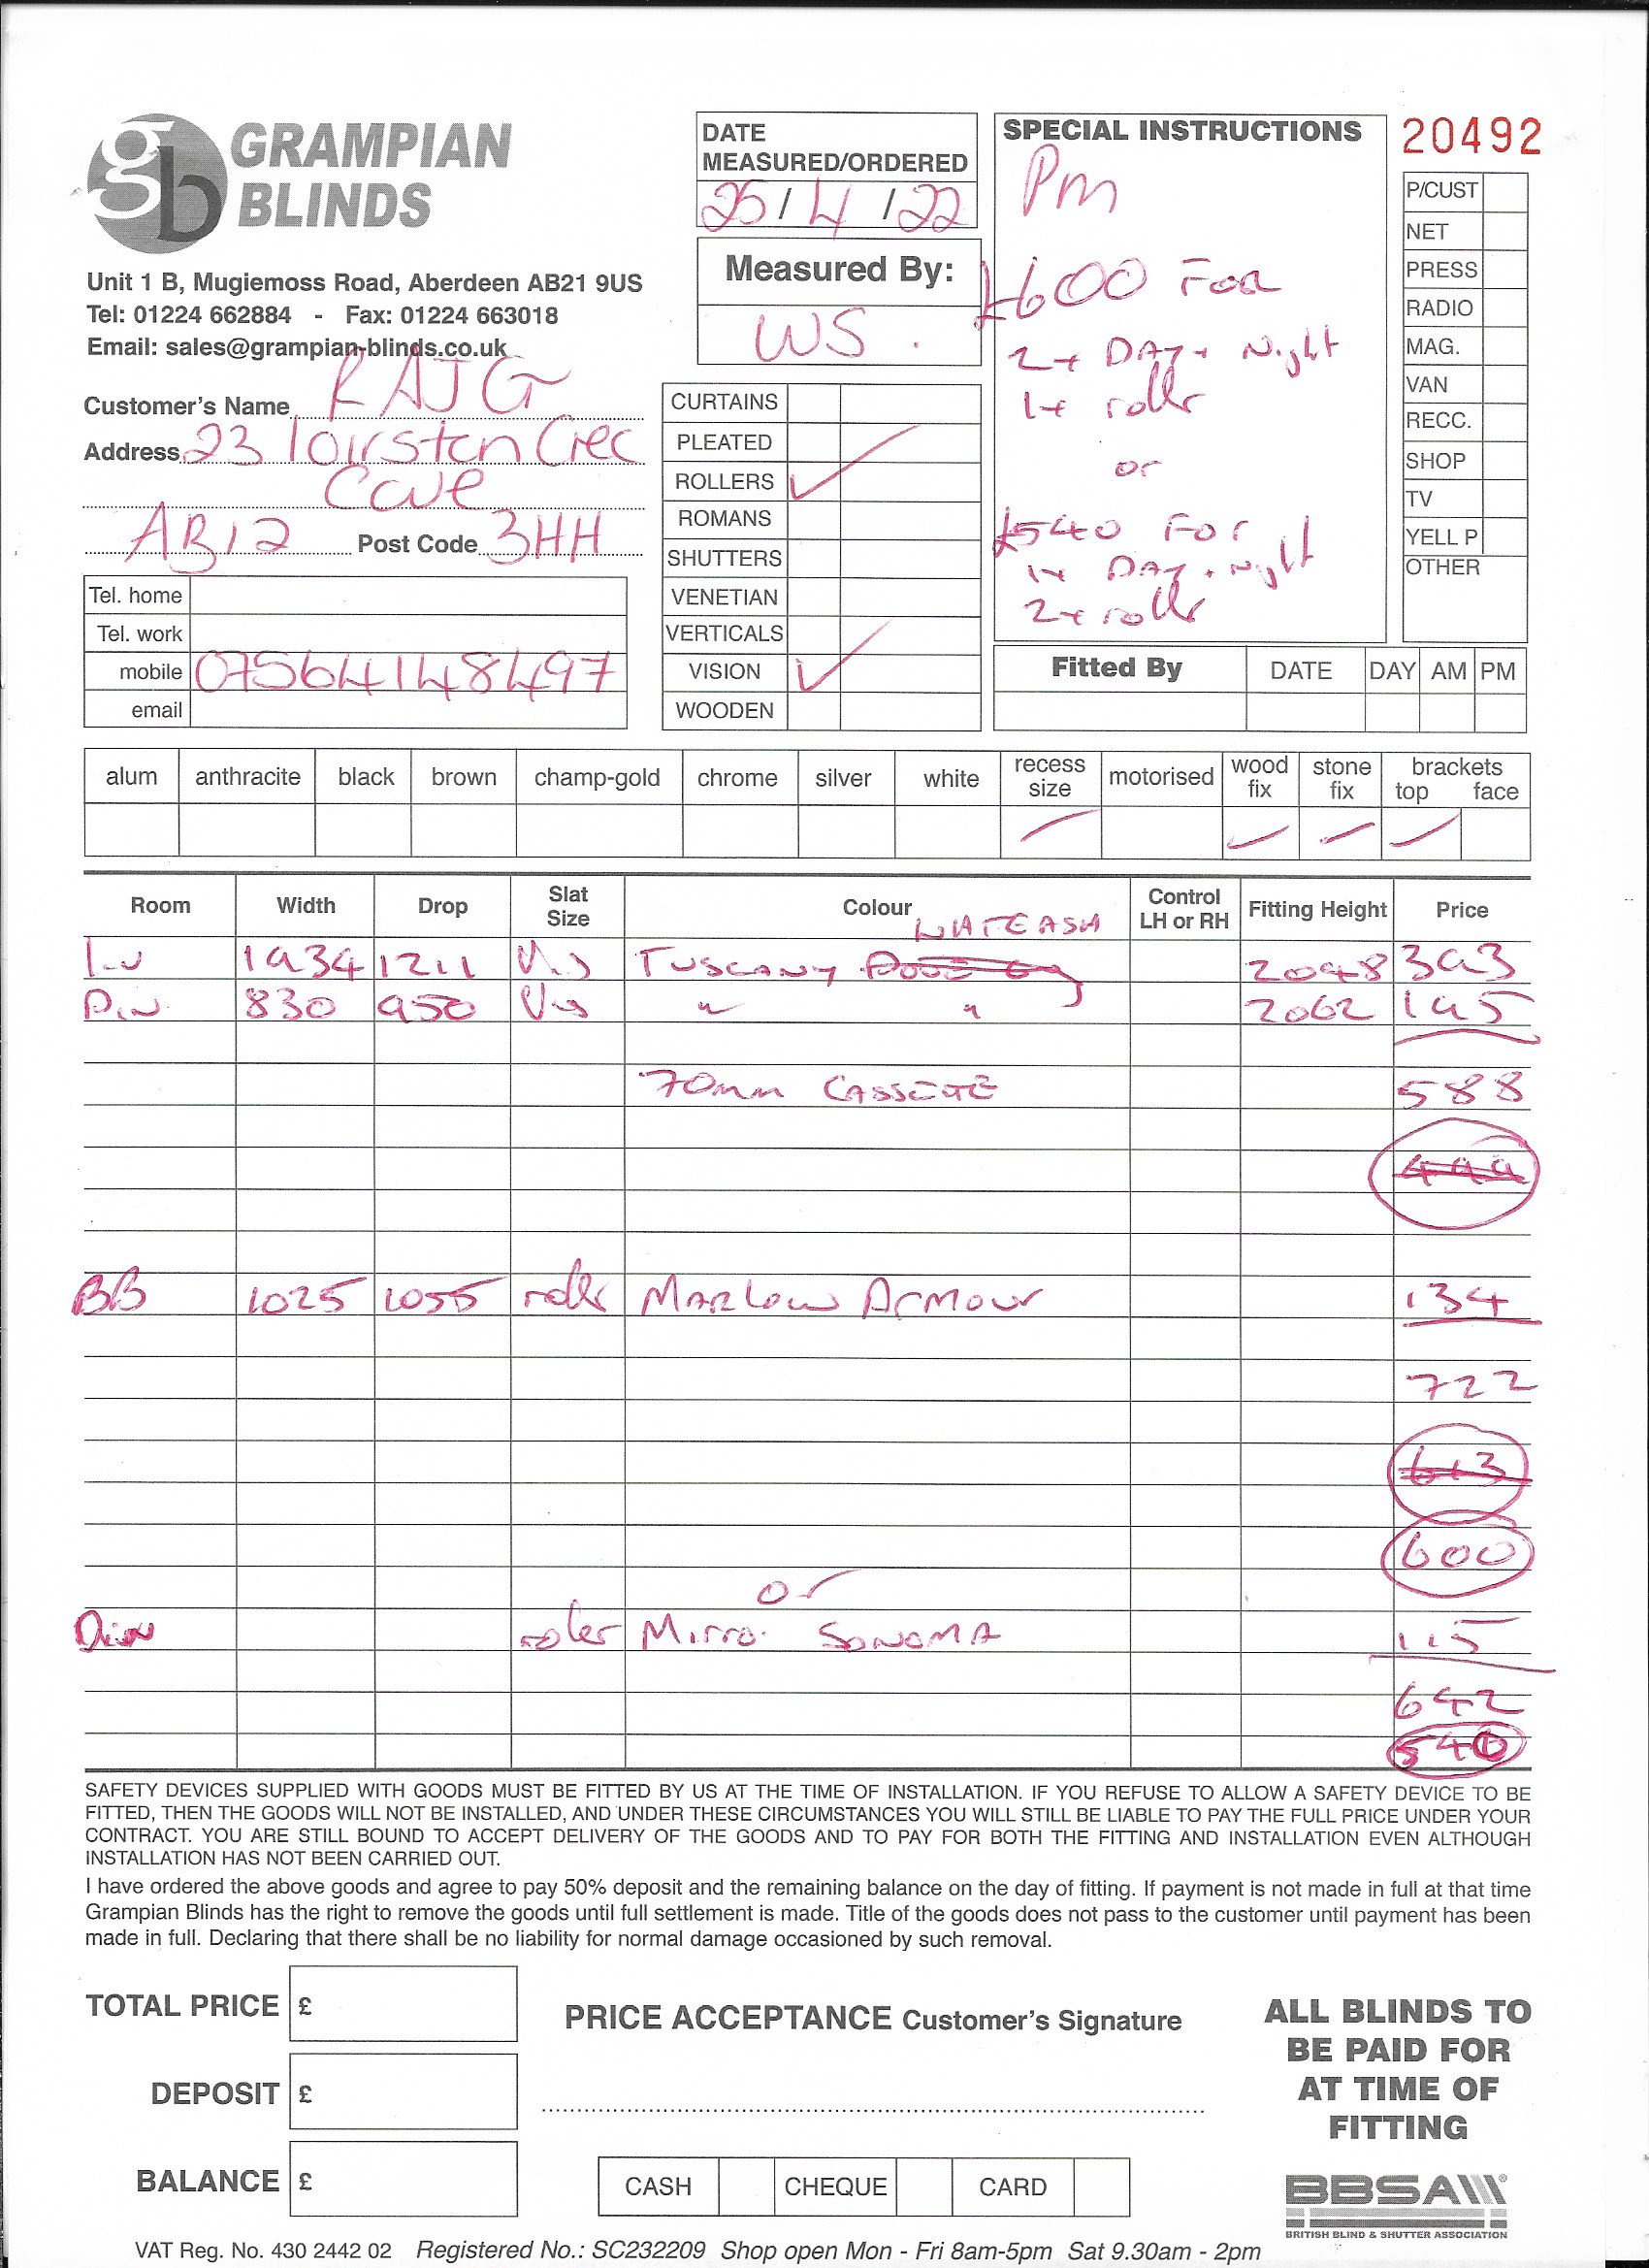 gb GRAMPIAN
BLINDS
Unit 1 B, Mugiemoss Road, Aberdeen AB21 9US
Tel: 01224 662884 - Fax: 01224 663018
Email: sales@grampian-blinds.co.uk
Customer's Name RAJ G
Address 23 Loirsten Cres
Cove
AB12 Post Code 3HH
Tel. home
Tel. work
mobile 07564148497
email
DATE
MEASURED/ORDERED
25/4/22
Measured By:
WS.
CURTAINS
PLEATED
ROLLERS ✓
ROMANS
SHUTTERS
VENETIAN
VERTICALS
VISION ✓
WOODEN
SPECIAL INSTRUCTIONS
Pm
£600 For
2x DAY + Night
1x roller
or
£540 For
1x DAY + Night
2x roller
20492
P/CUST
NET
PRESS
RADIO
MAG.
VAN
RECC.
SHOP
TV
YELL P
OTHER
Fitted By DATE DAY AM PM
alum anthracite black brown champ-gold chrome silver white recess size motorised wood fix stone fix brackets top face
Room Width Drop Slat Size Colour Control LH or RH Fitting Height Price
WHITEASH
Liv 1934 1211 Vis TUSCANY 2048 393
Din 830 950 Vis " " 2062 195
70mm CASSETTE 588
499
BB 1025 1055 roller MARLOW ARMOUR 134
722
613
600
or
Din roller Mirro. SONOMA 115
642
540
SAFETY DEVICES SUPPLIED WITH GOODS MUST BE FITTED BY US AT THE TIME OF INSTALLATION. IF YOU REFUSE TO ALLOW A SAFETY DEVICE TO BE
FITTED, THEN THE GOODS WILL NOT BE INSTALLED, AND UNDER THESE CIRCUMSTANCES YOU WILL STILL BE LIABLE TO PAY THE FULL PRICE UNDER YOUR
CONTRACT. YOU ARE STILL BOUND TO ACCEPT DELIVERY OF THE GOODS AND TO PAY FOR BOTH THE FITTING AND INSTALLATION EVEN ALTHOUGH
INSTALLATION HAS NOT BEEN CARRIED OUT.
I have ordered the above goods and agree to pay 50% deposit and the remaining balance on the day of fitting. If payment is not made in full at that time
Grampian Blinds has the right to remove the goods until full settlement is made. Title of the goods does not pass to the customer until payment has been
made in full. Declaring that there shall be no liability for normal damage occasioned by such removal.
TOTAL PRICE £
DEPOSIT £
BALANCE £
PRICE ACCEPTANCE Customer's Signature
CASH CHEQUE CARD
ALL BLINDS TO
BE PAID FOR
AT TIME OF
FITTING
BBSA
BRITISH BLIND & SHUTTER ASSOCIATION
VAT Reg. No. 430 2442 02 Registered No.: SC232209 Shop open Mon - Fri 8am-5pm Sat 9.30am - 2pm